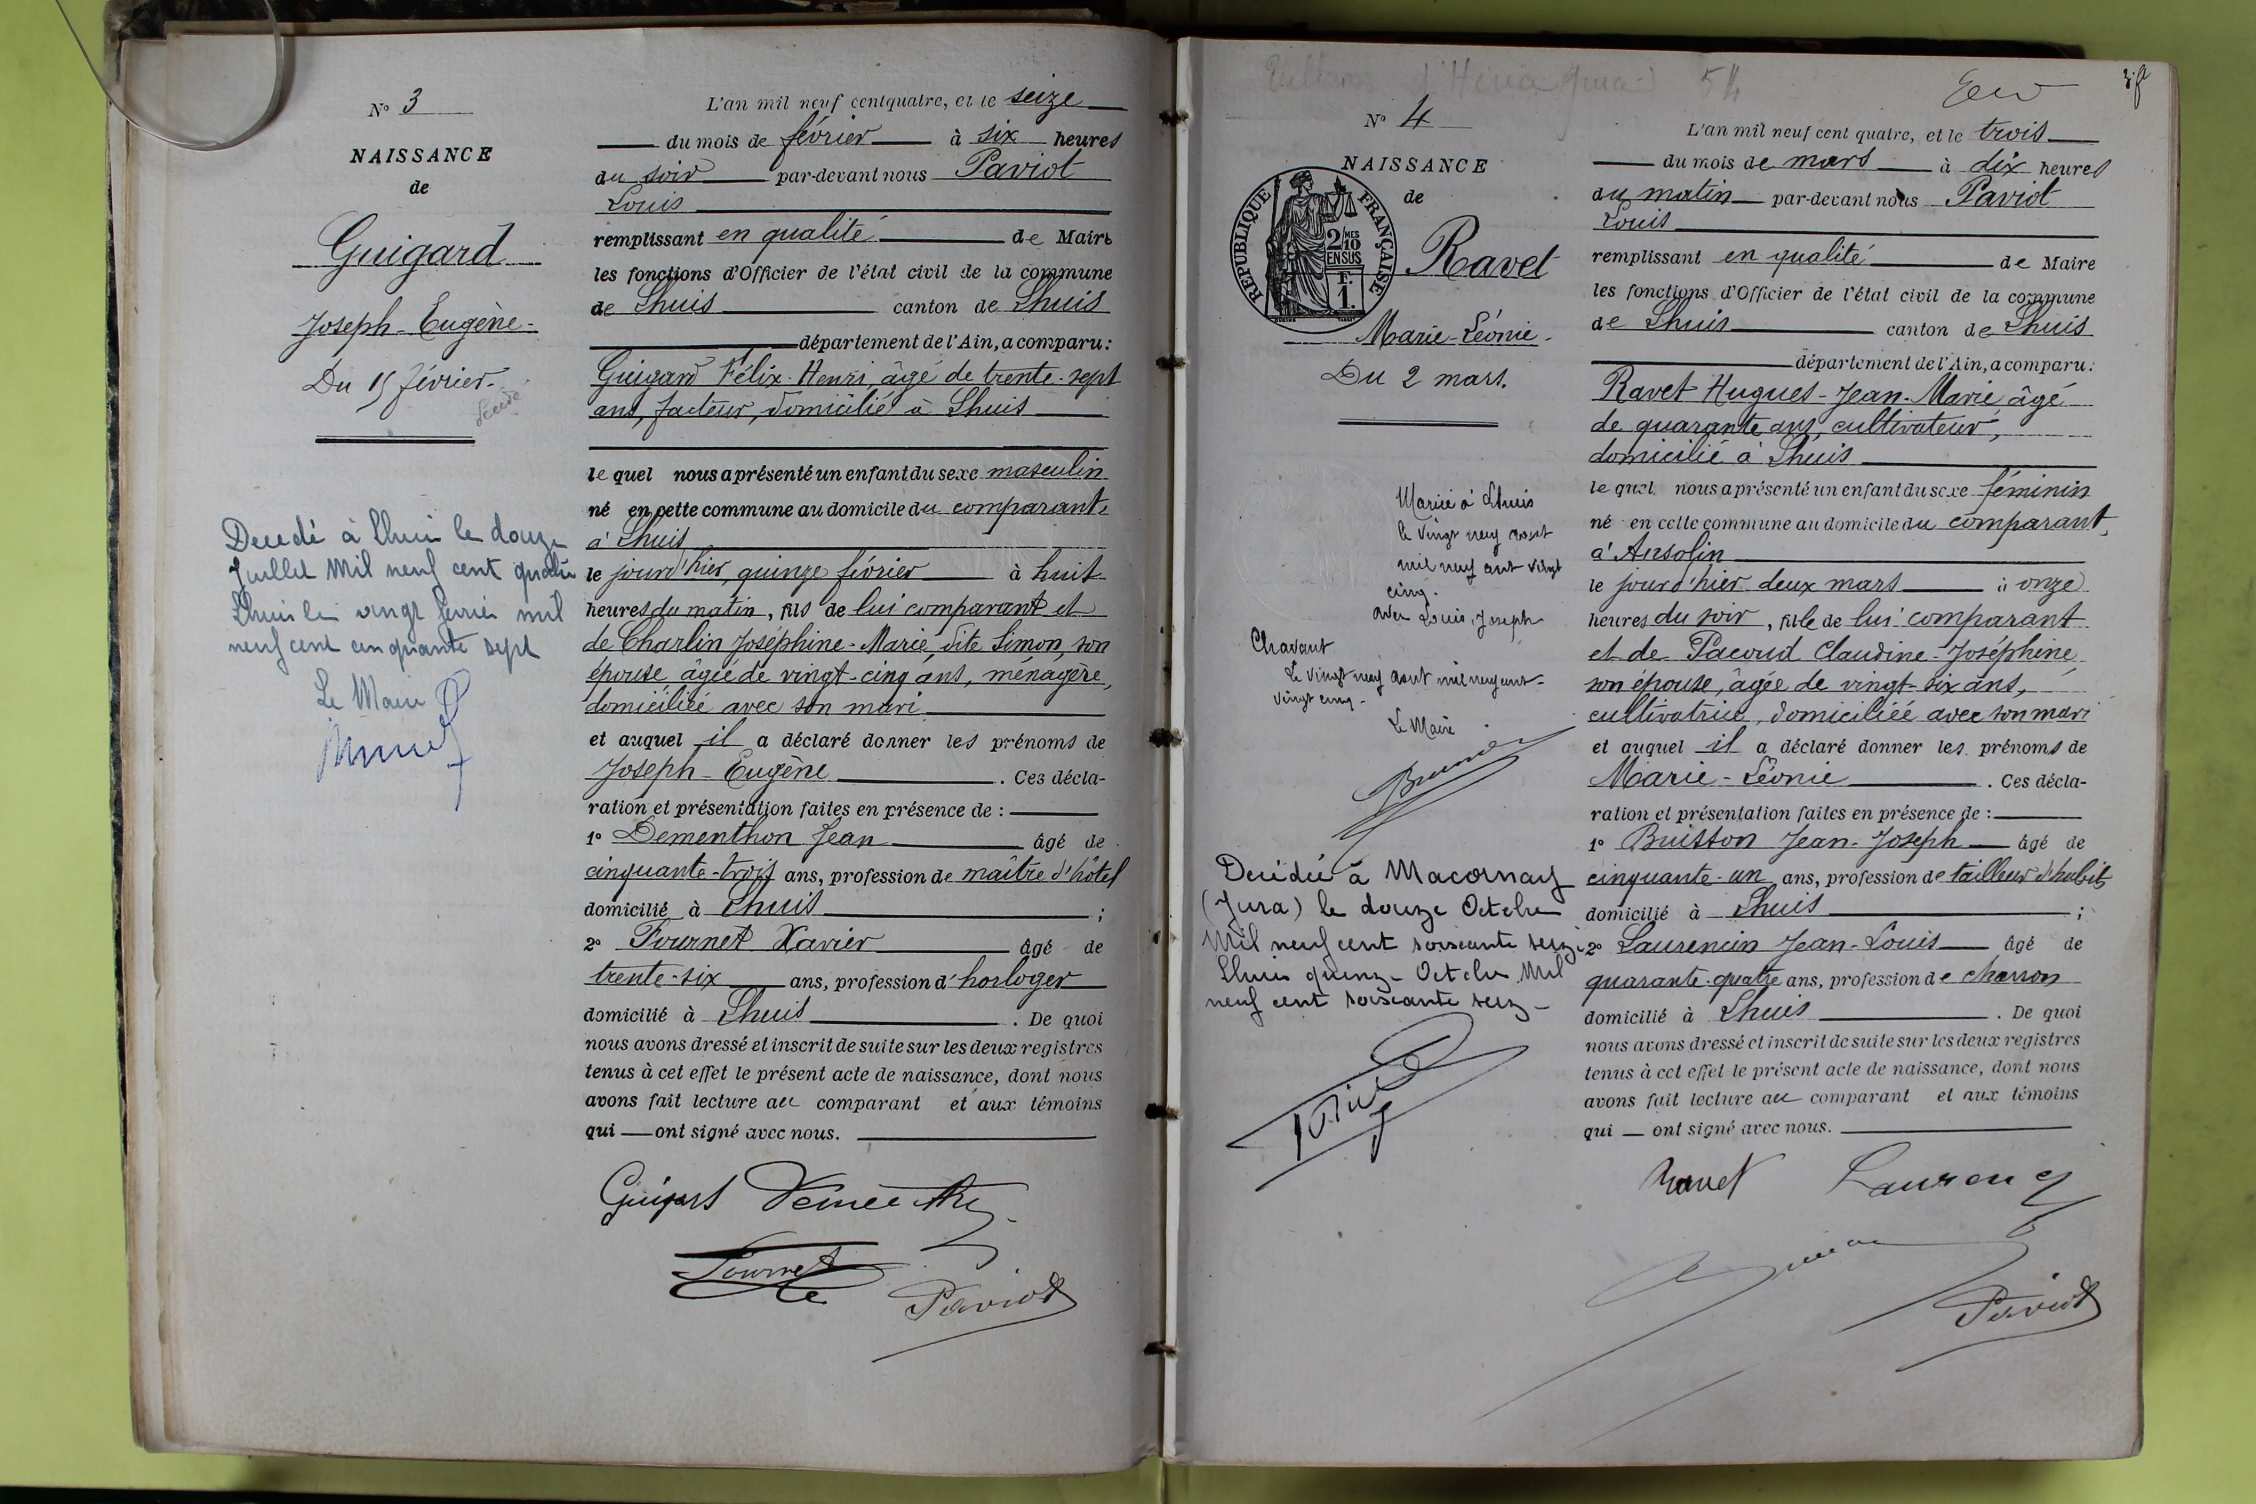 N° 3
NAISSANCE
de
Guigard
Joseph-Eugène-
Du 15 février.
Décédé
Decedé à Lhuis le douze
Juillet mil neuf cent quatre
Lhuis le vingt fevrier mil
neuf cent cinquante sept
Le Maire
L'an mil neuf cent quatre, et le seize
du mois de février à six heures
du soir par-devant nous Paviot
Louis
remplissant en qualité de Maire
les fonctions d'Officier de l'état civil de la commune
de Lhuis canton de Lhuis
département de l'Ain, a comparu:
Guigard Félix-Henri, âgé de trente-sept
ans, facteur, domicilié à Lhuis
lequel nous a présenté un enfant du sexe masculin
né en cette commune au domicile du comparant,
à Lhuis
le jour d'hier, quinze février à huit
heures du matin, fils de lui comparant et
de Charlin Joséphine-Marie, dite Simon, son
épouse âgée de vingt-cinq ans, ménagère,
domiciliée avec son mari
et auquel il a déclaré donner les prénoms de
Joseph-Eugène. Ces décla-
ration et présentation faites en présence de :
1° Dementhon Jean âgé de
cinquante-trois ans, profession de maître d'hôtel
domicilié à Lhuis ;
2° Fournet Xavier âgé de
trente-six ans, profession d'horloger
domicilié à Lhuis. De quoi
nous avons dressé et inscrit de suite sur les deux registres
tenus à cet effet le présent acte de naissance, dont nous
avons fait lecture au comparant et aux témoins
qui ont signé avec nous.
Guigard
Fournet
Paviot
54
N° 4
NAISSANCE
de
REPUBLIQUE FRANÇAISE
2/10 MES
EN SUS
1 F.
Ravet
Marie-Léonie-
Du 2 mars.
Mariée à Lhuis
le vingt neuf aout
mil neuf cent vingt
cinq.
avec Louis, Joseph
Chavant
Le vingt neuf aout mil neuf cent-
vingt cinq-
Le Maire
Décédée à Macornay
(Jura) le douze Octobre
Mil neuf cent soixante seize
Lhuis quinze Octobre Mil
neuf cent soixante seize
L'an mil neuf cent quatre, et le trois
du mois de mars à dix heures
du matin par-devant nous Paviot
Louis
remplissant en qualité de Maire
les fonctions d'Officier de l'état civil de la commune
de Lhuis canton de Lhuis
département de l'Ain, a comparu:
Ravet Hugues-Jean-Marie âgé
de quarante ans, cultivateur,
domicilié à Lhuis
lequel nous a présenté un enfant du sexe féminin
né en cette commune au domicile du comparant,
à Ansolin
le jour d'hier deux mars à onze
heures du soir, fille de lui comparant
et de Pacoud Claudine-Joséphine
son épouse, âgée de vingt-six ans,
cultivatrice, domiciliée avec son mari
et auquel il a déclaré donner les prénoms de
Marie-Léonie. Ces décla-
ration et présentation faites en présence de :
1° Buisson Jean-Joseph âgé de
cinquante-un ans, profession de tailleur d'habits
domicilié à Lhuis ;
2° Laurencin Jean-Louis âgé de
quarante-quatre ans, profession de charron
domicilié à Lhuis. De quoi
nous avons dressé et inscrit de suite sur les deux registres
tenus à cet effet le présent acte de naissance, dont nous
avons fait lecture au comparant et aux témoins
qui ont signé avec nous.
Ravet
Paviot